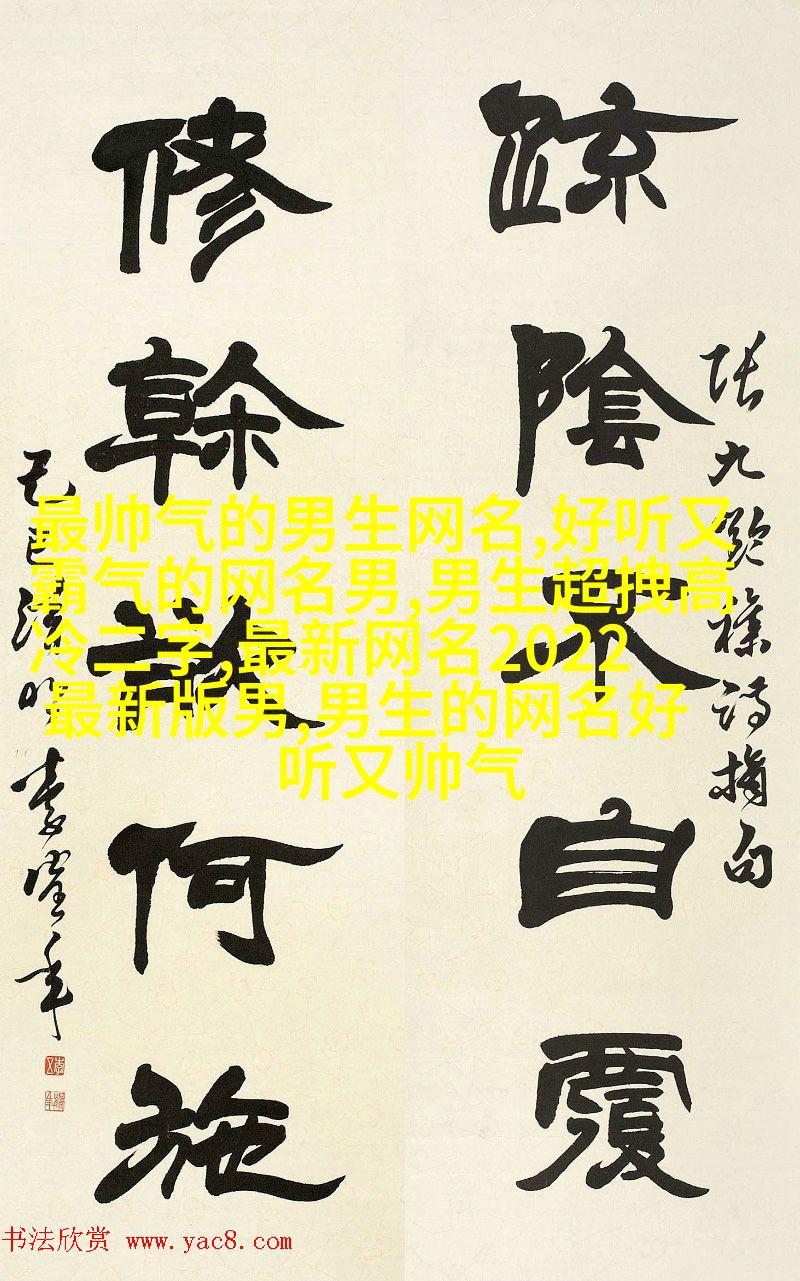 疏陰不自覆
張九齡雜詩摘句
修幹何施
最帅气的男生网名,好听又
霸气的网名男,男生超拽高
冷二字,最新网名2022
最新版男,男生的网名好
听又帅气
书法欣赏 www.yac8.com